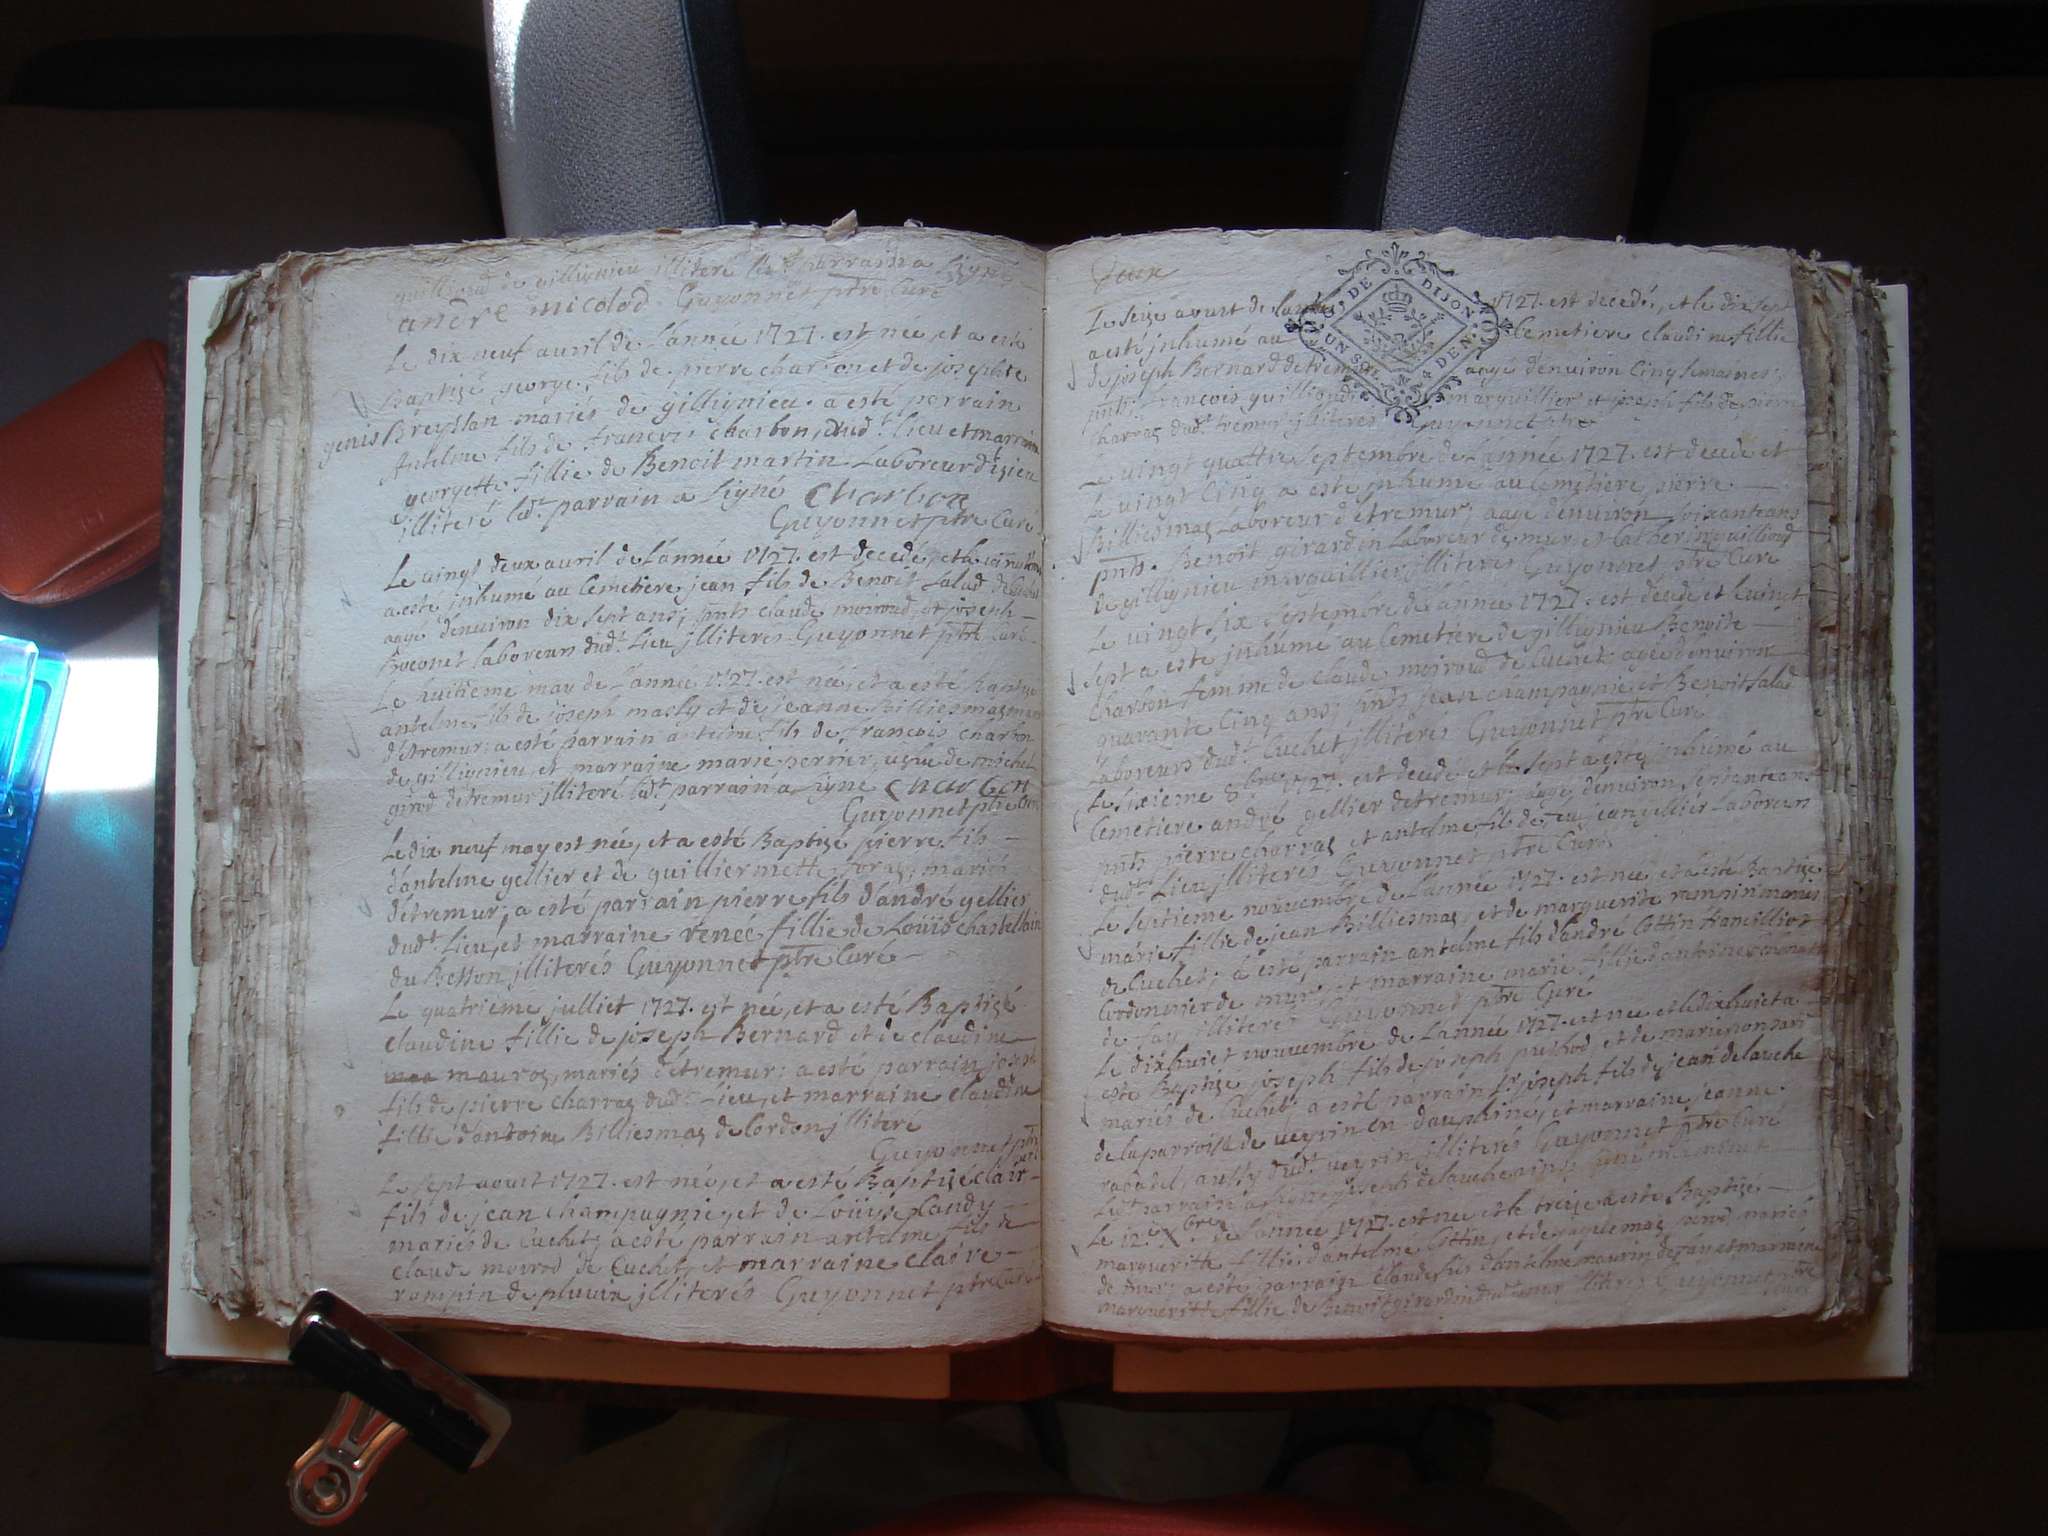 guilliond de gillignieu illiteré led.t parrain a signé
andre micolod Guyonnet ptre Curé
Le dix neuf avril de L'année 1727. est née, et a esté
Baptizé george fils de pierre charbon et de josephte
genis Breyssan mariés de gillignieu. a esté parrain
Antelme fils de francois charbon, dud.t lieu et marraine
georgette fillie de Benoit martin Laboreur d'izieu
illiteré led.t parrain a signé Charbon
Guyonnet ptre Curé
Le vingt deux avril de L'année 1727. est decedé, et le
a esté inhumé au Cemetiere jean fils de Benoit Salad de Cuchet
aagé d'environ dix sept ans; pnts claude moiroud, et joseph
Boconet laboreurs dud.t Lieu jlliterés Guyonnet ptre Curé
Le huitieme may de L'annee 1727. est née, et a esté Baptizé
antelme fils de joseph masly et de jeanne Billiesmaz mariés
d'etremur; a esté parrain antelme fils de francois Charbon
de gillignieu, et marraine marie perrier, vefve de michel
girod d'etremur jlliteré led.t parrain a signé Charbon
Guyonnet ptre Curé
Le dix neuf may est née, et a esté Baptizé pierre fils
d'antelme gellier et de guilliermette mariés
d'etremur; a esté parrain pierre fils d'andré gellier
dud.t Lieu, et marraine renée fillie de Loüis chastellain
du Besson jlliterés Guyonnet ptre Curé
Le quatrieme julliet 1727. est née, et a esté Baptizé
claudine fillie de joseph Bernard et de claudine
mauraz, mariés d'etremur; a esté parrain joseph
fils de pierre charraz dud.t Lieu, et marraine claudine
fillie d'antoine Billiesmaz de Cordon jlliteré
Guyonnet ptre Curé
Le sept aoust 1727. est née, et a esté Baptizé clair
fils de jean champagnie, et de Loüyse Landy
mariés de Cuchet; a esté parrain antelme fils de
claude moirod de Cuchet, et marraine claire
rampin de pluvix jlliterés Guyonnet ptre Curé
Deux
GN. DE DIJON
UN S. N. 4 DEN.
Le seize aoust de L'année 1727. est decedé, et le dix sept
a esté inhumé au Cemetiere claudine fillie
de joseph Bernard d'etremur aagé d'environ Cinq semaines;
pnts francois guilliond marguillier et joseph fils de pierre
Charraz dud.t tremur jlliterés Guyonnet ptre
Le vingt quattre septembre de L'année 1727. est decedé et
Le vingt Cinq a esté jnhumé au Cemetiere pierre
Billiesmaz Laboreur d'etremur; aagé d'environ soixante ans
pnts. Benoit girardin Laboreur de mur, et catherin guilliond
de gillignieu marguillier jlliteres Guyonnet ptre Curé
Le vingt six septembre de L'année 1727. est decedé et le vingt
sept a esté jnhumé au Cemetiere de gillignieu Benoite
Charbon femme de claude moiroud de Cuchet; agé d'environ
quarante Cinq ans; pnts jean champagnie, et Benoit Salad
Laboreurs dud.t Cuchet jlliterés Guyonnet ptre Curé
Le sixieme 8bre 1727. est decedé et le sept a esté inhumé au
Cemetiere andré gellier d'etremur; agé d'environ septante ans
pnts pierre charraz et antelme fils de feu jean gellier Laboreurs
dud.t Lieu jlliterés Guyonnet ptre Curé
Le septieme nouvembre de L'année 1727. est née, et a esté Baptizé
marie fillie de jean Billiesmaz, et de marguerite rampin mariés
de Cuchet; a esté parrain antelme fils d'andré Cottin
Cordonnier de mur, et marraine marie fillie d'antoine
de fay jlliteres Guyonnet ptre Curé
Le dixhuict nouvembre de L'année 1727. est née et le dixhuict a
esté Baptizé joseph fils de joseph et de marie
mariés de Cuchet; a esté parrain s.r joseph fils de jean delauche
de la parroisse de veyrin en dauphiné, et marraine jeanne
rabatel, aussy dud.t veyrin jlliterés Guyonnet ptre Curé
Led.t parrain a signé joseph delauche
Le 12e Xbre de L'année 1727. est née et le treize a esté Baptizé
margueritte fillie d'antelme Cottin, et de mariés
de mur; a esté parrain claude fils d'antelme maurin de fay, et marraine
margueritte fillie de Benoit girardin dud.t mur jlliteres Guyonnet ptre
Curé